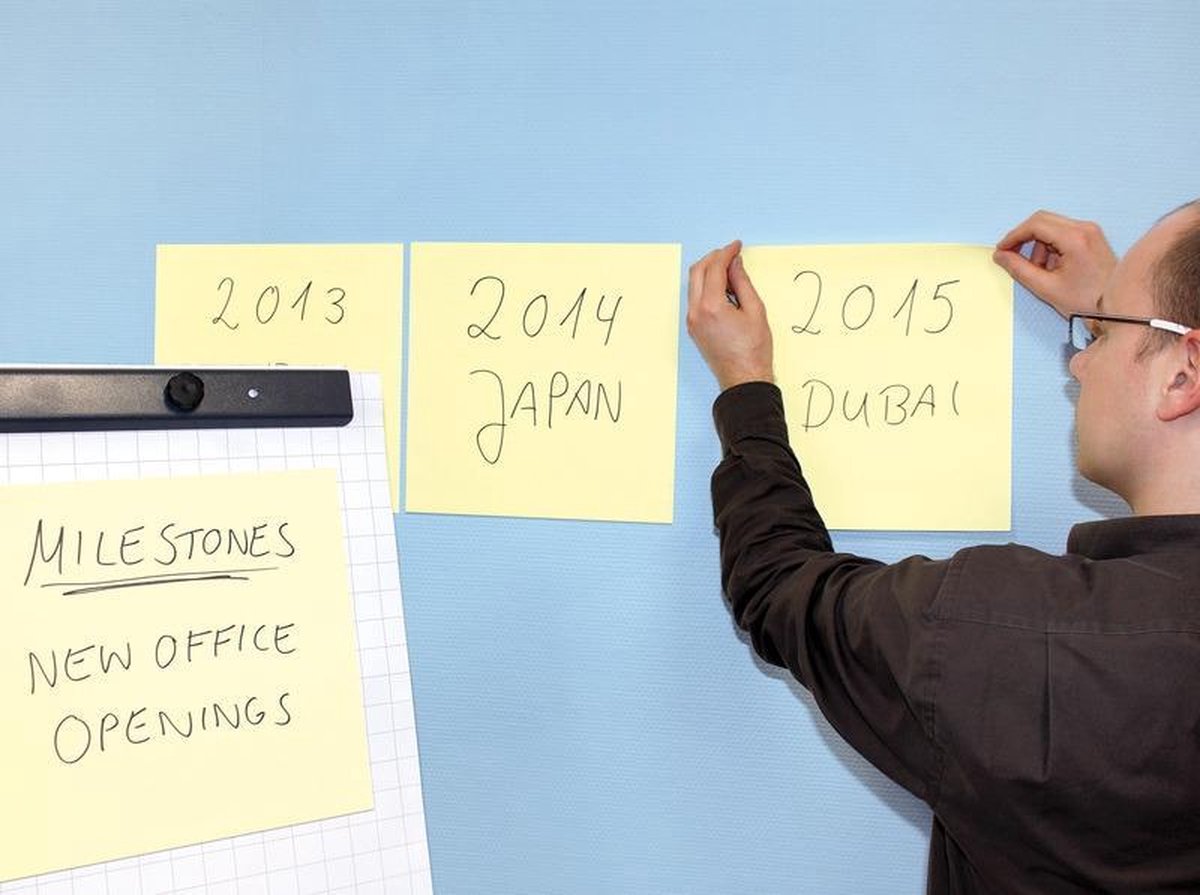 2013
2014
JAPAN
2015
DUBAI
MILESTONES
NEW OFFICE
OPENINGS